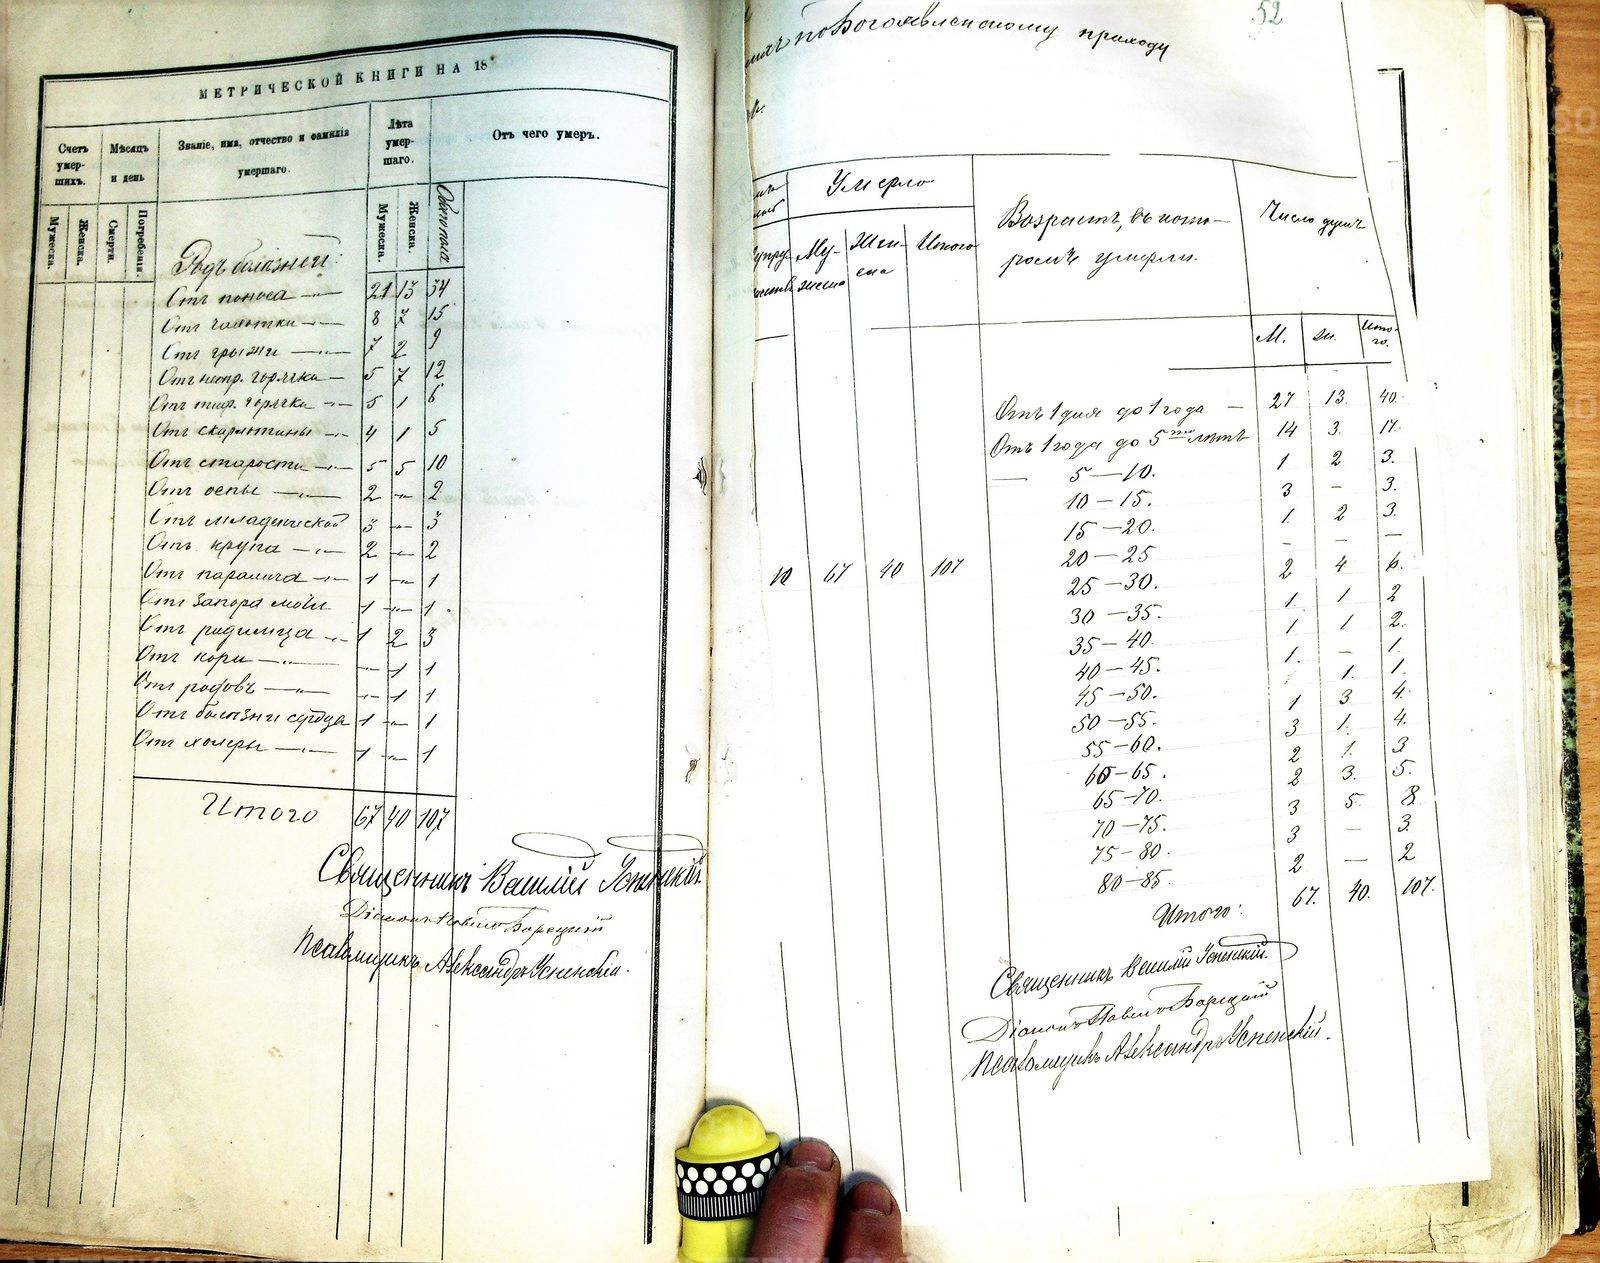 МЕТРИЧЕСКОЙ КНИГИ НА 18
Счетъ умер-шихъ.
Мѣсяцъ и день
Званіе, имя, отчество и фамилія умершаго.
Лѣта умер-шаго.
Отъ чего умеръ.
Мужеска.
Женска.
Смерти.
Погребенія.
Мужеска.
Женска.
Родъ болѣзней:
Отъ поноса — 21 13 34
Отъ чахотки — 8 7 15
Отъ грыжи — 7 2 9
Отъ непр. горячки — 5 7 12
Отъ тиф. горячки — 5 1 6
Отъ скарлатины — 4 1 5
Отъ старости — 5 5 10
Отъ оспы — 2 „ 2
Отъ младенческой 3 „ 3
Отъ крупа — 2 „ 2
Отъ паралича — 1 „ 1
Отъ запора мочи 1 „ 1.
Отъ родимца 1 2 3
Отъ кори — „ 1 1
Отъ родовъ — „ 1 1
Отъ болѣзни сердца 1 „ 1
Отъ холеры — 1 „ 1
Итого 67 40 107
Священникъ Василій Успенскій.
Діаконъ Павелъ Борецкій
Псаломщикъ Александръ Успенскій.
52
по Богоявленскому приходу
Умерло
Возрастъ, въ кото-
ромъ умерли.
Число душъ
Му-
жеска
Жен-
ска
Итого
М. ж. Ито-
го.
Отъ 1 дня до 1 года — 27 13. 40.
Отъ 1 года до 5ти лѣтъ 14 3. 17.
— 5—10. 1 2 3.
10—15. 3 — 3.
15—20. 1. 2 3.
20—25 — — —
10 67 40 107
25—30. 2 4 6.
30—35. 1. 1 2
35—40. 1 1 2.
40—45. 1. — 1.
45—50. 1. 1.
50—55. 1 3 4.
55—60. 3 1. 4.
60—65. 2 1. 3
65—70. 2 3. 5.
70—75. 3 5. 8.
75—80. 3 — 3.
80—85. 2 — 2
Итого: 67. 40. 107.
Священникъ Василій Успенскій.
Діаконъ Павелъ Борецкій
Псаломщикъ Александръ Успенскій.